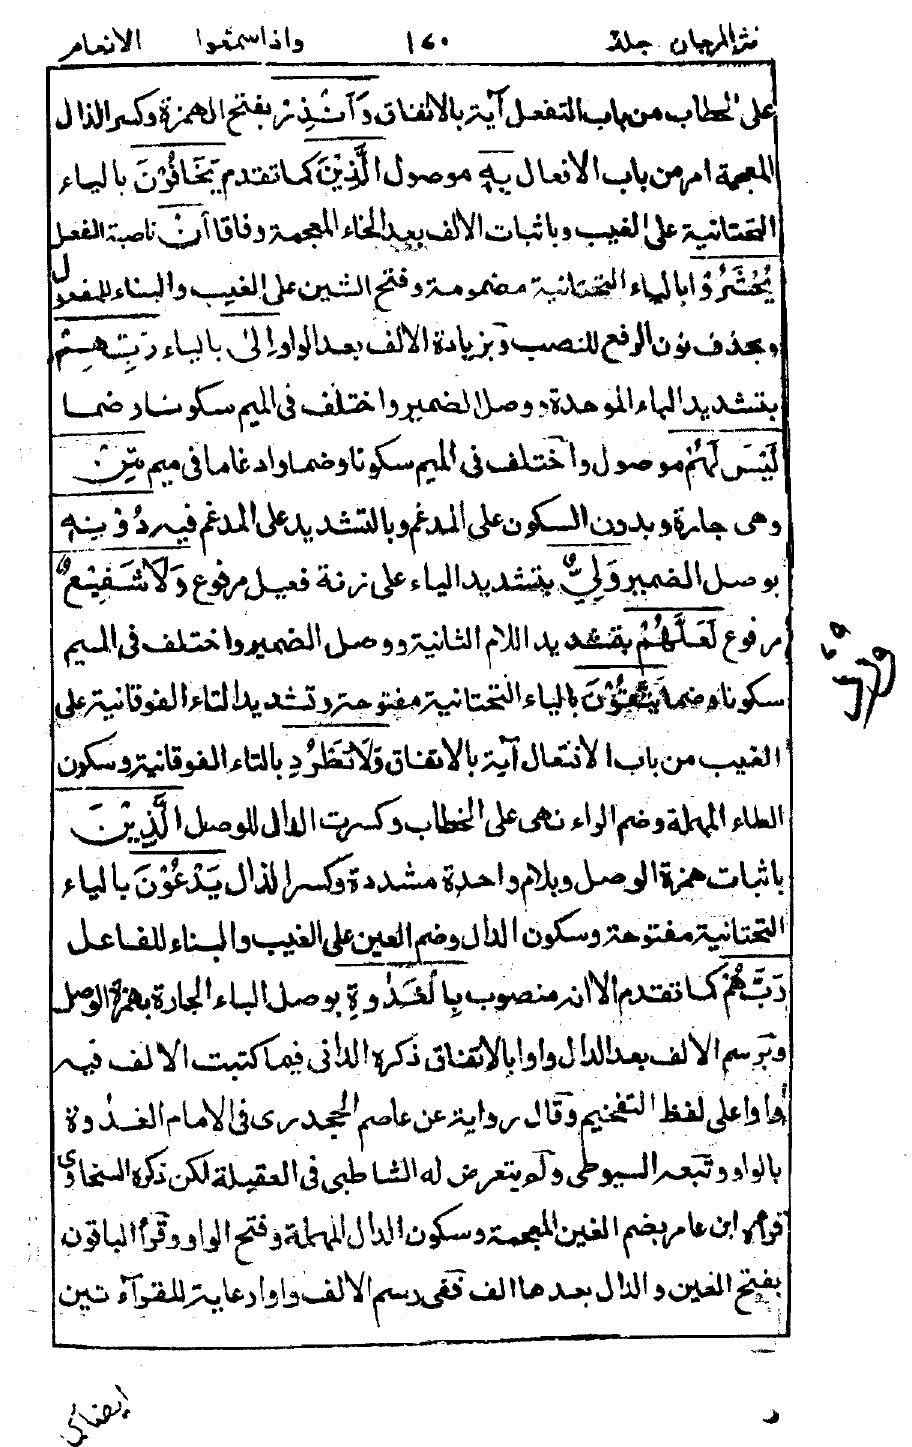 نثر المرجان جلد ١٤٠ واذاسمعوا الانعام
على الخطاب من باب التفعل آية بالاتفاق وَأَنْذِرْ بفتح الهمزة وكسر الذال
المعجمة امر من باب الافعال بِهِ موصول الَّذِيْنَ كما تقدم يَخَافُوْنَ بالياء
التحتانية على الغيب وباثبات الالف بعد الخاء المعجمة وفاقا أَنْ ناصبة الفعل
يُحْشَرُوْا بالياء التحتانية مضمومة وفتح الشين على الغيب والبناء للمفعول
وبحذف نون الرفع للنصب وبزيادة الالف بعد الواو اِلىٰ بالياء رَبِّهِمْ
بتشديد الباء الموحدة ووصل الضمير واختلف فى الميم سكونا وضما
لَيْسَ لَهُمْ موصول واختلف فى الميم سكونا وضما وادغاما فى ميم مِّنْ
وهى جارة وبدون السكون على المدغم وبالتشديد على المدغم فيه دُوْنِهٖ
بوصل الضمير وَلِيٌّ بتشديد الياء على زنة فعيل مرفوع وَلَا شَفِيْعٌ
مرفوع لَعَلَّهُمْ بتشديد اللام الثانية ووصل الضمير واختلف فى الميم
سكونا وضما يَتَّقُوْنَ بالياء التحتانية مفتوحة وتشديد التاء الفوقانية على
الغيب من باب الافتعال آية بالاتفاق وَلَا تَطْرُدِ بالتاء الفوقانية وسكون
الطاء المهملة وضم الراء نهى على الخطاب وكسرت الدال للوصل الَّذِيْنَ
باثبات همزة الوصل وبلام واحدة مشددة وكسر الذال يَدْعُوْنَ بالياء
التحتانية مفتوحة وسكون الدال وضم العين على الغيب والبناء للفاعل
رَبَّهُمْ كما تقدم الا انه منصوب بِالْغَدٰوةِ بوصل الباء الجارة بهمزة الوصل
وبرسم الالف بعد الدال واوا بالاتفاق ذكره الدانى فيما كتبت الالف فيه
واوا على لفظ التفخيم وقال رواية عن عاصم الجحدرى فى الامام الغدوة
بالواو وتبعه السيوطى ولم يتعرض له الشاطبى فى العقيلة لكن ذكره السخاوى
قرأه ابن عامر بضم الغين المعجمة وسكون الدال المهملة وفتح الواو وقرأ الباقون
بفتح الغين والدال بعدها الف ففى رسم الالف واوا رعاية للقرآء تين